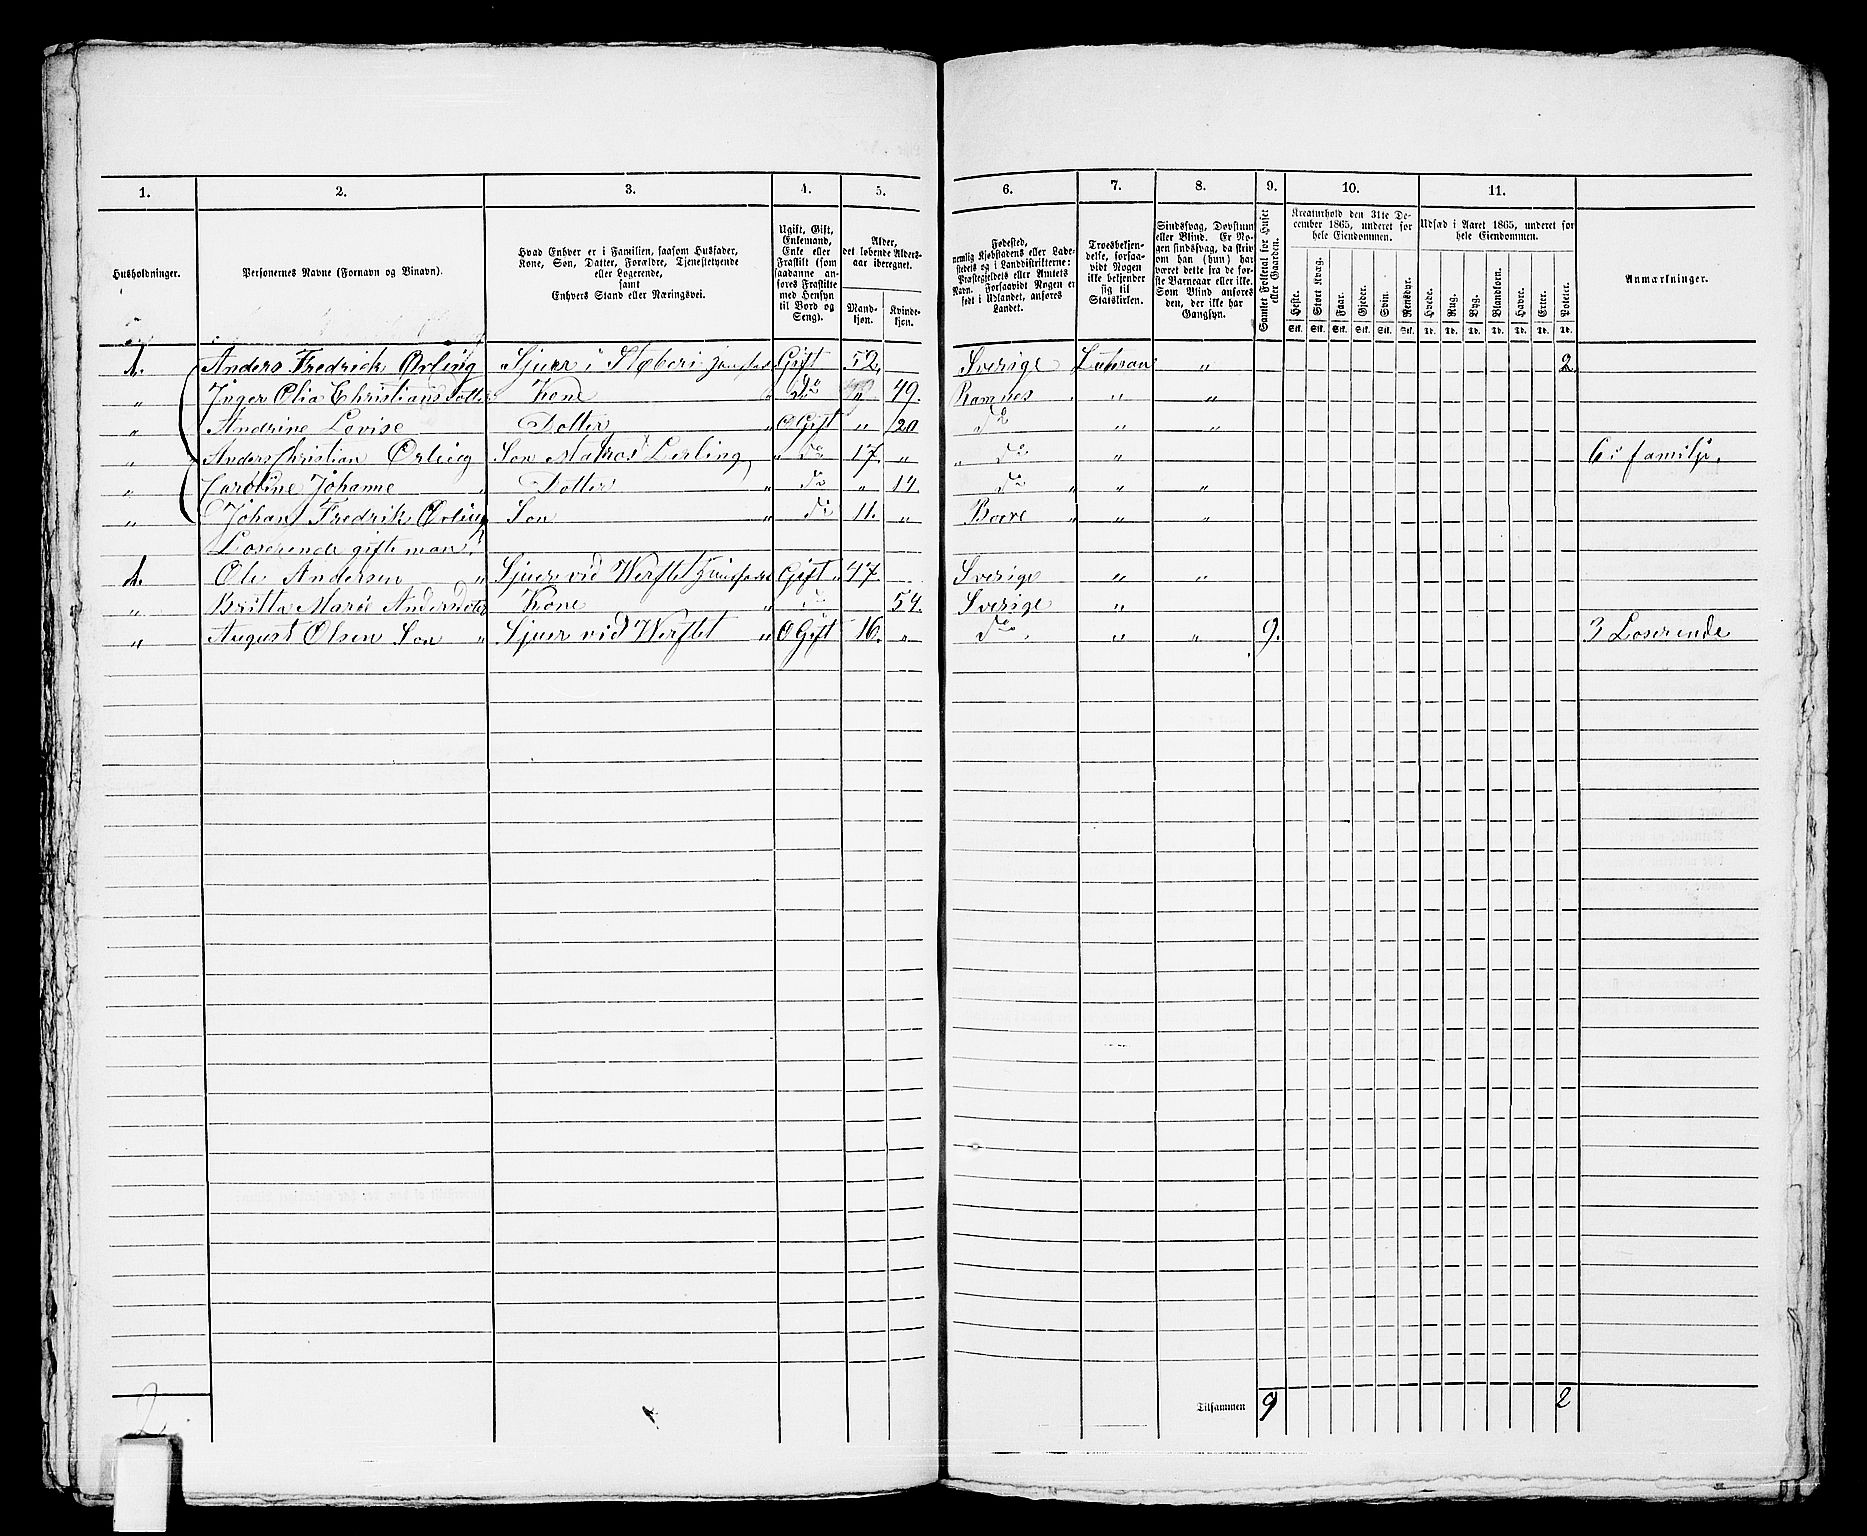 1. 2. 3. 4. 5. 6. 7. 8. 9. 10. 11.
Husholdninger.
Personernes Navne (Fornavn og Binavn).
Hvad Enhver er i Familien, saasom Husfader,
Kone, Søn, Datter, Forældre, Tjenestetyende
eller Logerende,
samt
Enhvers Stand eller Næringsvei.
Ugift, Gift,
Enkemand,
Enke eller
Fraskilt (som
saadanne an-
føres Fraskilte
med Hensyn
til Bord og
Seng).
Alder,
det løbende Alders-
aar iberegnet.
Mand-
kjøn.
Kvinde-
kjøn.
Fødested,
nemlig Kjøbstadens eller Lade-
stedets og i Landdistrikterne:
Præstegjeldets eller Amtets
Navn. Forsaavidt Nogen er
født i Udlandet, anføres
Landet.
Troesbekjen-
delse, forsaa-
vidt Nogen
ikke bekjender
sig til
Statskirken.
Sindssvag, Døvstum
eller Blind. Er No-
gen sindssvag, da skriv
om han (hun) har
været dette fra de før-
ste Barneaar eller ikke.
Som Blind anføres
den, der ikke har
Gangsyn.
Samlet Folketal for Huset
eller Gaarden.
Kreaturhold den 31te De-
cember 1865, underet for
hele Eiendommen.
Heste. Stort Kvæg. Faar. Gjeder. Svin. Rensdyr.
Stk. Stk. Stk. Stk. Stk. Stk.
Udsæd i Aaret 1865, underet for
hele Eiendommen.
Hvede. Rug. Byg. Blandkorn. Havre. Erter. Poteter.
Td. Td. Td. Td. Td. Td. Td.
Anmærkninger.
1. Anders Fredrick Orling Sjuer i Gift 52. Sverige Luhran „ 2
„ Inger Olia Christiansdotter Kone do „ 49. Ramnes „ „
„ Andrine Lovise Dotter O Gift „ 20 do „ „
„ Anders Christian Orling Son Matros do 17. „ do „ 6 i familje.
„ Caroline Johanne „ Dotter „ do „ 14. do „ „ „
„ Johan Fredrik Orling Son „ do 11. „ Borre „ „ „
Loserende gifte man
1. Ole Andersen „ Sjuer vid Werftet Gift „ 47 Sverige „ „
„ Britta Andersdoter Kone „ do 54. Sverige „
„ August Olsen Son „ Sjuer vid Werftet „ O Gift 16. „ do „ „ 9. 3 Loserende
Tilsammen 9 2
2